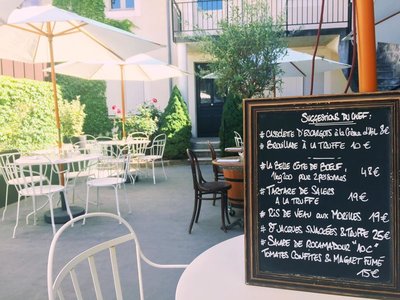 Suggestions du Chef:
# Cassolette d'Escargots à la Crème d'Ail 8€
# Brouillade à la truffe 10€
# La Belle Côte de Boeuf:
1kg200 pour 2 personnes 48€
# Tartare de Salers
à la truffe 19€
# Ris de Veau aux Morilles 19€
# St Jacques Snackées & Truffe 25€
# Salade de Rocamadour "10€"
Tomates Confites & Magret Fumé
15€